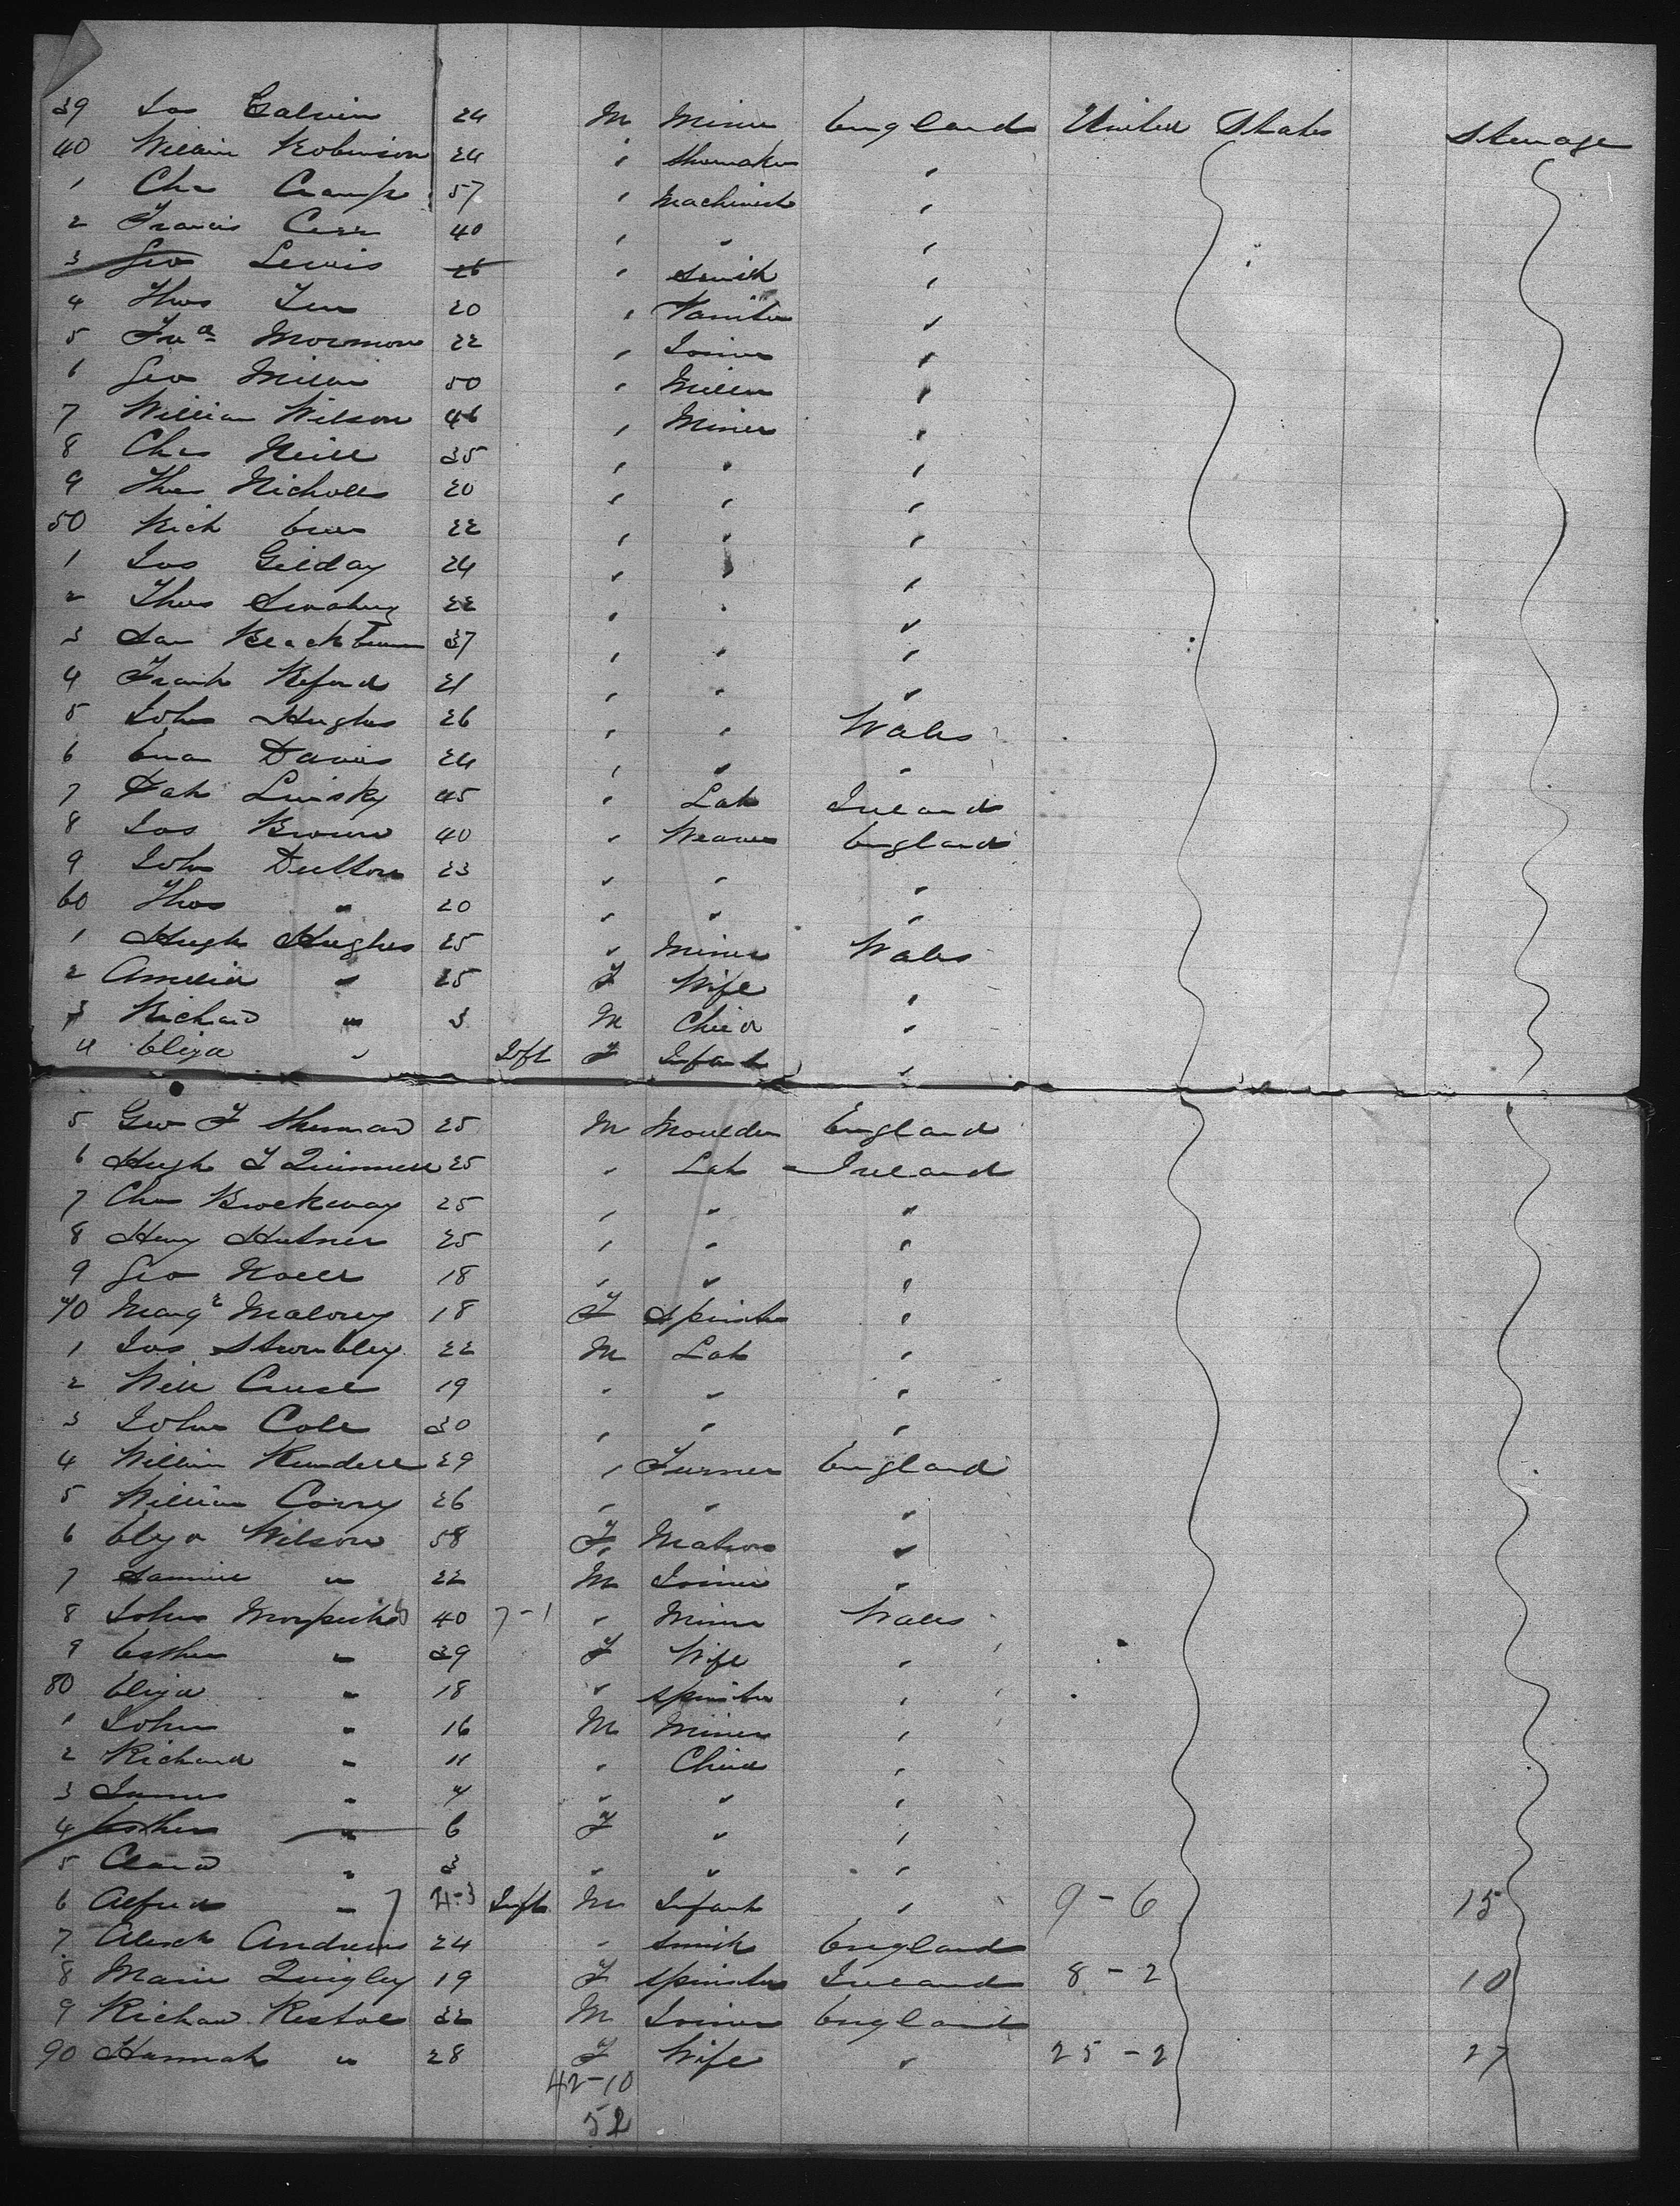 39 Jas Calvin 24 M Miner England United States Steerage
40 William Robinson 24 " Shoemaker "
1 Chas Cramp 57 " Machinist "
2 Francis Carr 40 " " "
3 Geo Lewis 26 " Smith "
4 Thos 20 " "
5 Fras Mormon 22 " Joiner "
6 Geo Miller 50 " Miller "
7 William Wilson 46 " Miner "
8 Chas Neill 35 " " "
9 Thos Nicholls 20 " " "
50 Rich 22 " " "
1 Jas Gilday 24 " " "
2 Thos 22 " " "
3 Sam Blackburn 37 " " "
4 Frank Reford 21 " " "
5 John Hughes 26 " " Wales
6 Evan Davis 24 " " "
7 Patk Linsky 45 " Lab Ireland
8 Jas Brown 40 " Weaver England
9 John Dutton 23 " " "
60 Thos " 20 " " "
1 Hugh Hughes 25 " Miner Wales
2 Amelia " 25 F Wife "
3 Richard " 3 M Child "
4 Eliza " Inft F Infant "
5 Geo F Sherman 25 M Moulder England
6 Hugh 25 " Lab Ireland
7 Chas Brockway 25 " " "
8 Henry Hutner 25 " " "
9 Geo 18 " " "
70 Margt Maloney 18 F Spinster "
1 Jas 22 M Lab "
2 Will Cruse 19 " " "
3 John Cole 30 " " "
4 William Rundell 29 " Turner England
5 William Corry 26 " " "
6 Eliza Wilson 58 F Matron "
7 Samuel " 22 M Joiner "
8 John 40 7-1 " Miner Wales
9 Esther " 39 F Wife "
80 Eliza " 18 " Spinster "
1 John " 16 M Miner "
2 Richard " 11 " Child "
3 James " 7 " " "
4 Esther " 6 F " "
5 Clara " 3 " " "
6 Alfred " 4-3 Inft M Infant " 9-6 15
7 Alexdr Andrews 24 " Smith England
8 Marie Quigley 19 F Spinster Ireland 8-2 10
9 Richard Restal 22 M Joiner England
90 Hannah " 28 F Wife " 25-2 27
42-10
52